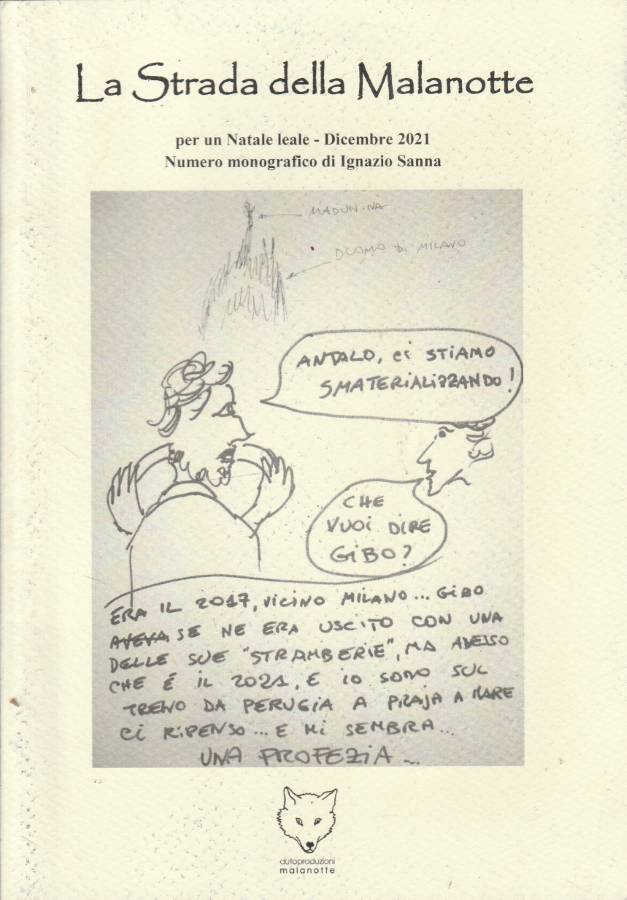 La Strada della Malanotte
per un Natale leale - Dicembre 2021
Numero monografico di Ignazio Sanna
MADUNINA
DUOMO DI MILANO
ANTALO, CI STIAMO
SMATERIALIZZANDO!
CHE
VUOI DIRE
GIBO?
ERA IL 2017, VICINO MILANO... GIBO
AVEVA SE NE ERA USCITO CON UNA
DELLE SUE "STRAMBERIE", MA ADESSO
CHE É IL 2021, E IO SONO SUL
TRENO DA PERUGIA A PRAJA A MARE
CI RIPENSO... E MI SEMBRA...
UNA PROFEZIA...
autoproduzioni
malanotte